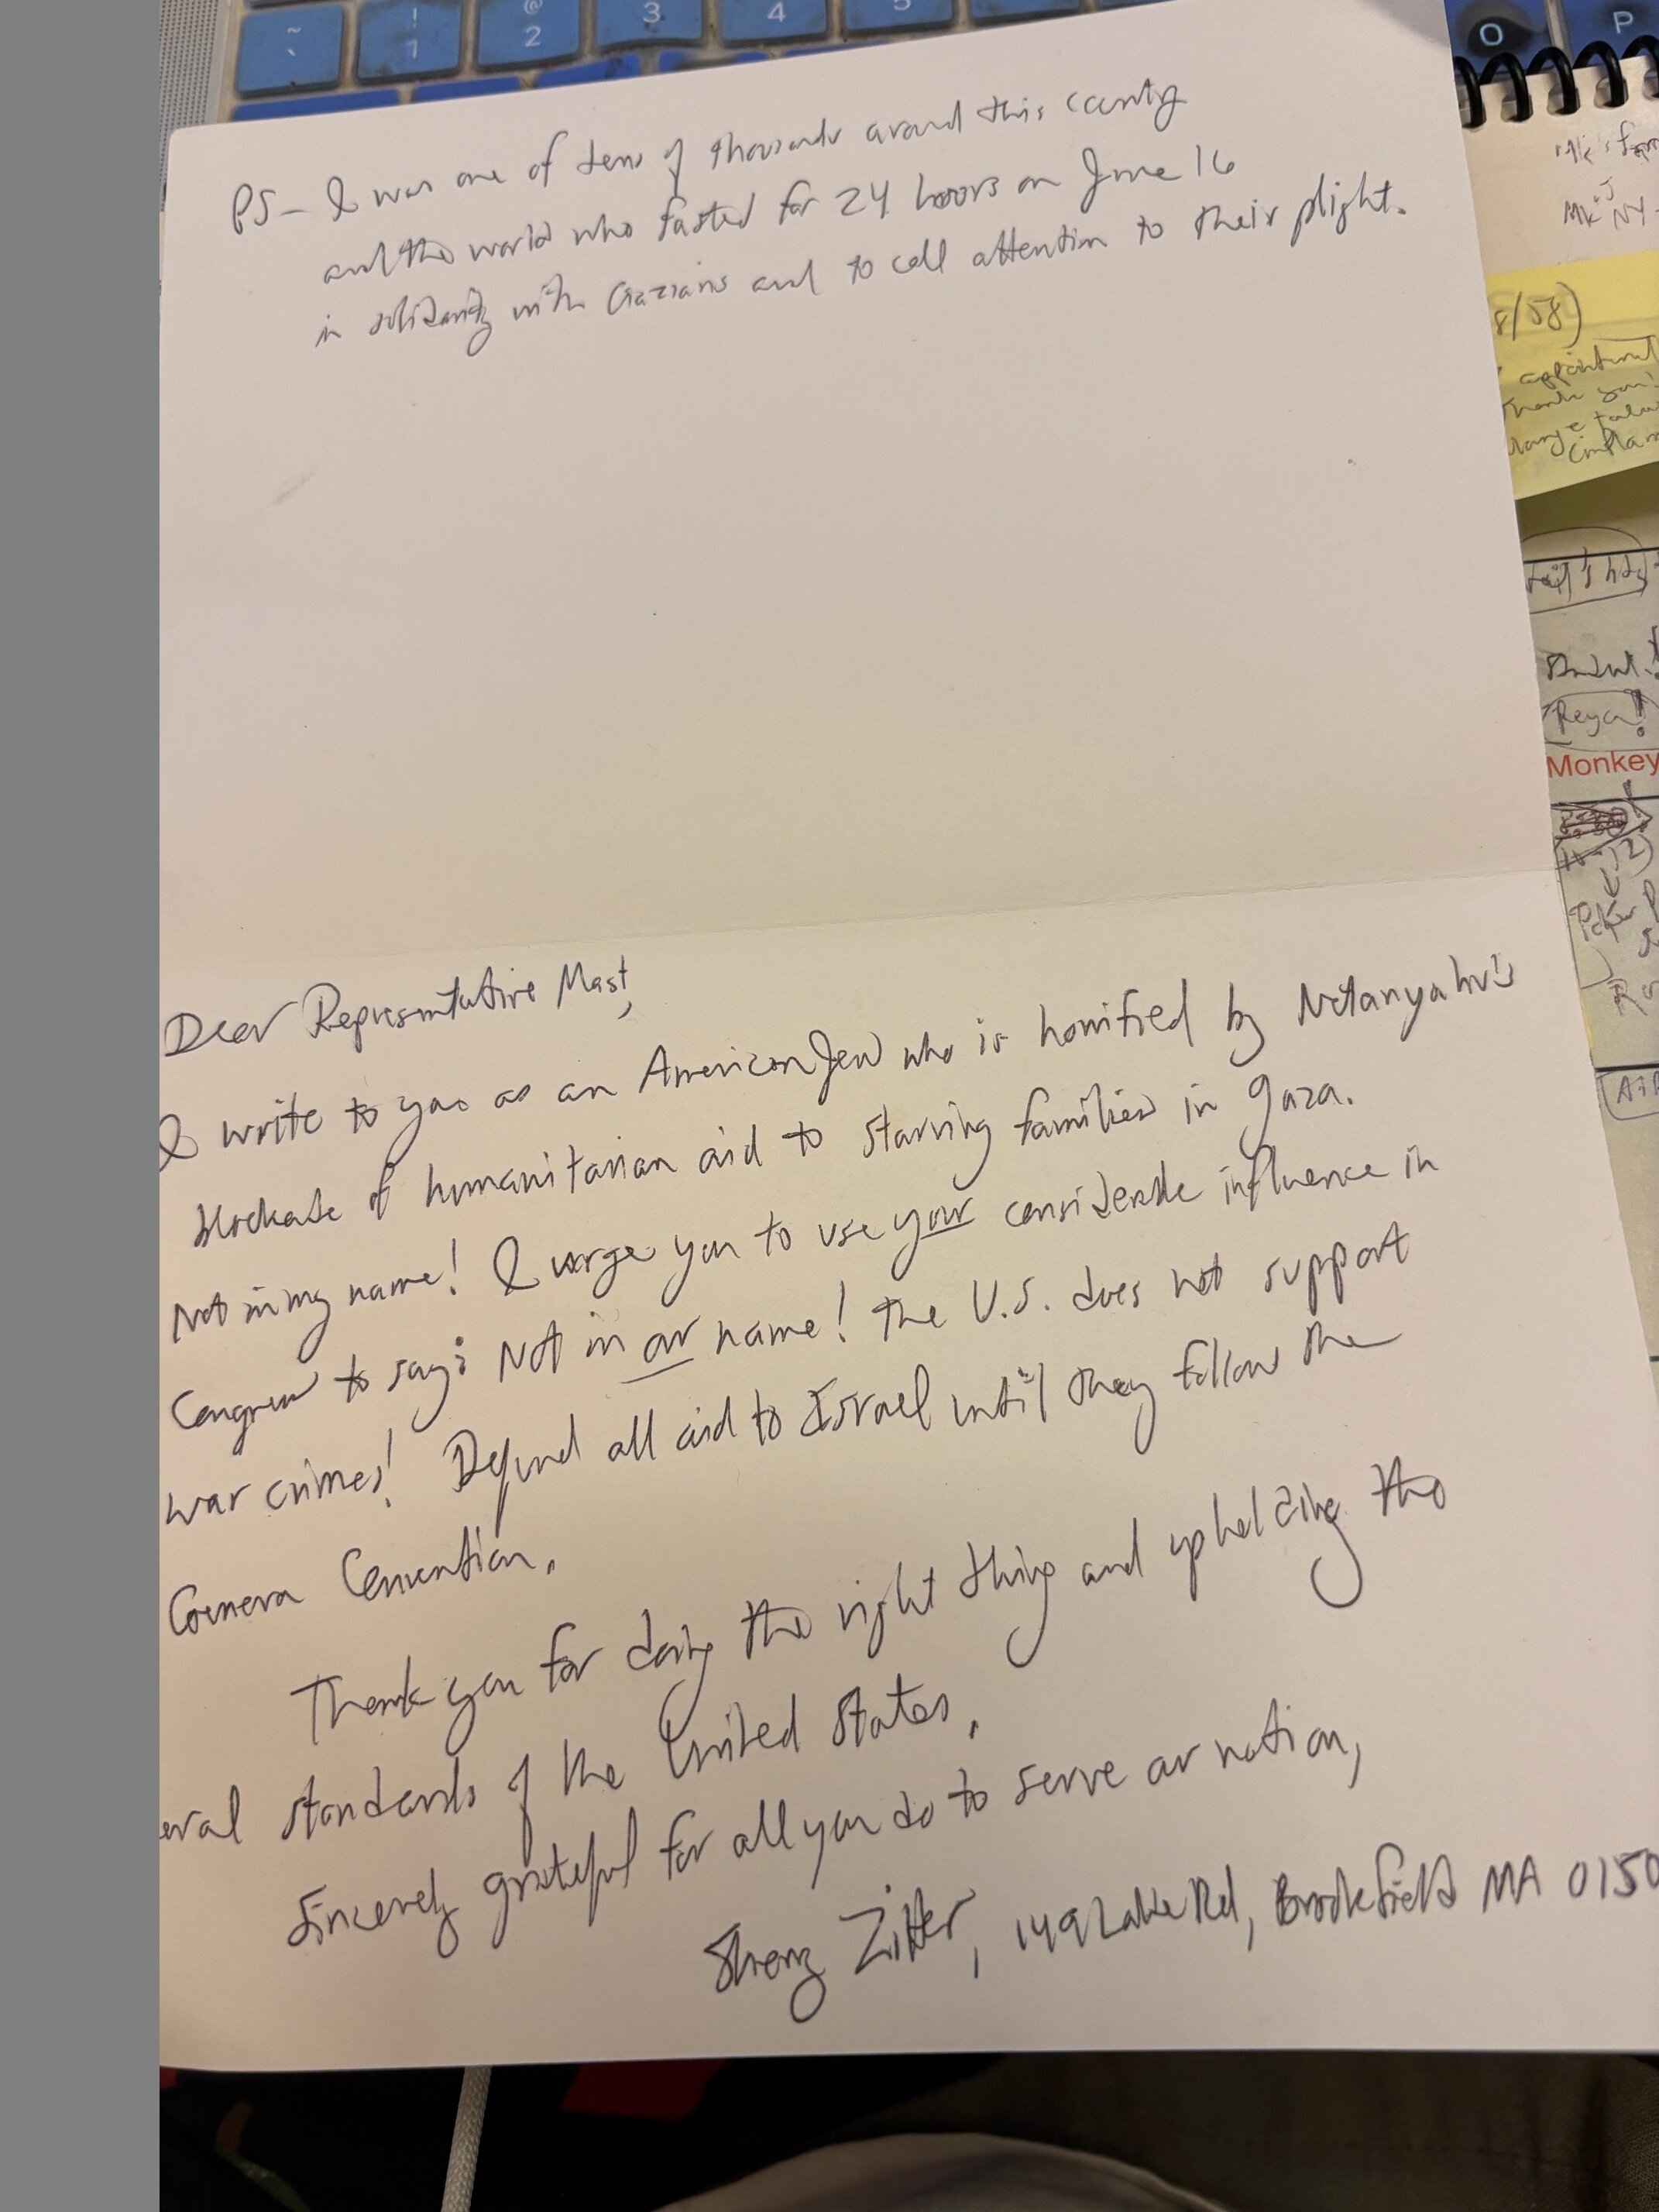 ~ ` ! 1 @ 2 3 4 5 O P
PS – I was one of tens of thousands around this country
and the world who fasted for 24 hours on June 16
in solidarity with Gazans and to call attention to their plight.
Dear Representative Mast,
I write to you as an American Jew who is horrified by Netanyahu's
blockade of humanitarian aid to starving families in Gaza.
Not in my name! I urge you to use your considerable influence in
Congress to say: Not in our name! The U.S. does not support
war crimes! Defund all aid to Israel until they follow the
Geneva Convention.
Thank you for doing the right thing and upholding the
eral standards of the United States.
Sincerely grateful for all you do to serve our nation,
Zitter, 149 Lake Rd, Brookfield MA 0150
MK's
NY
8/58)
appointment
Thank you!
Reya!
Monkey